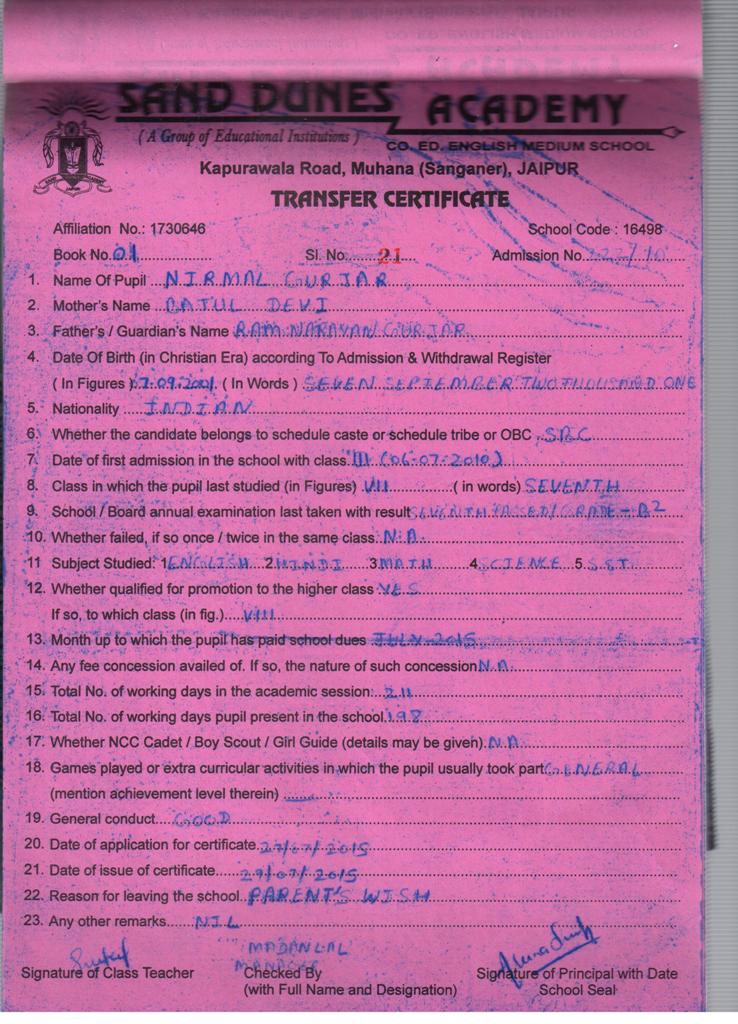 SAND DUNES ACADEMY
( A Group of Educational Institutions )
CO. ED. ENGLISH MEDIUM SCHOOL
Kapurawala Road, Muhana (Sanganer), JAIPUR
TRANSFER CERTIFICATE
Affiliation No.: 1730646 School Code : 16498
Book No. 01 Sl. No. 21 Admission No.
1. Name Of Pupil NIRMAL GURJAR
2. Mother's Name DEVI
3. Father's / Guardian's Name RAM NARAYAN GURJAR
4. Date Of Birth (in Christian Era) according To Admission & Withdrawal Register
( In Figures ) 7.09.2001. ( In Words ) SEVEN SEPTEMBER TWO THOUSAND ONE
5. Nationality INDIAN
6. Whether the candidate belongs to schedule caste or schedule tribe or OBC SBC
7. Date of first admission in the school with class III (06-07-2010)
8. Class in which the pupil last studied (in Figures) VII ( in words) SEVENTH
9. School / Board annual examination last taken with result SEVENTH PASSED/GRADE-B2
10. Whether failed, if so once / twice in the same class N.A.
11 Subject Studied: 1 ENGLISH 2 HINDI 3 MATH 4 SCIENCE 5 S.ST
12. Whether qualified for promotion to the higher class YES
If so, to which class (in fig.) VIII
13. Month up to which the pupil has paid school dues JULY-2015
14. Any fee concession availed of. If so, the nature of such concession N.A.
15. Total No. of working days in the academic session: 211
16. Total No. of working days pupil present in the school 198
17. Whether NCC Cadet / Boy Scout / Girl Guide (details may be given) N.A
18. Games played or extra curricular activities in which the pupil usually took part GENERAL
(mention achievement level therein)
19. General conduct GOOD
20. Date of application for certificate 27/07/2015
21. Date of issue of certificate 29/07/2015
22. Reason for leaving the school PARENT'S WISH
23. Any other remarks NIL
MADANLAL
MANAGER
Signature of Class Teacher Checked By Signature of Principal with Date
(with Full Name and Designation) School Seal